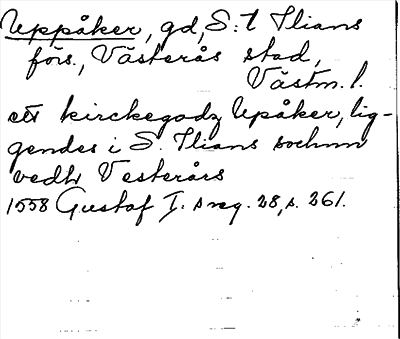 Uppåker, gd, S:t Ilians
förs., Västerås stad,
Västm. l.
ett kirckegodz Upåker, lig-
gendes i S. Ilians sochnn
vedh Vesterårs
1558 Gustaf I:s reg. 28, s. 261.